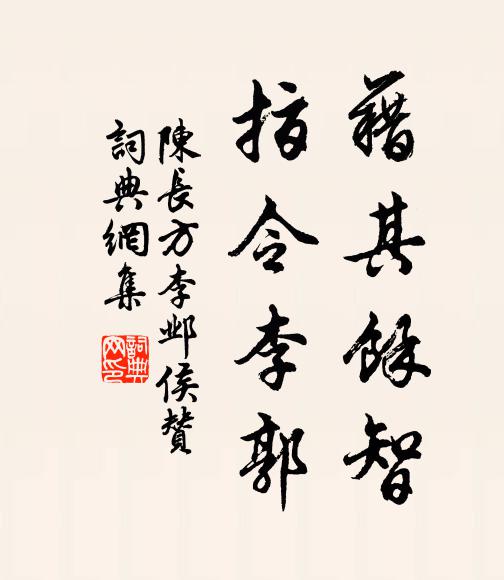 藉其餘智
指令李郭
陳長方李鄴侯贊
詞典網集
詞典
网印